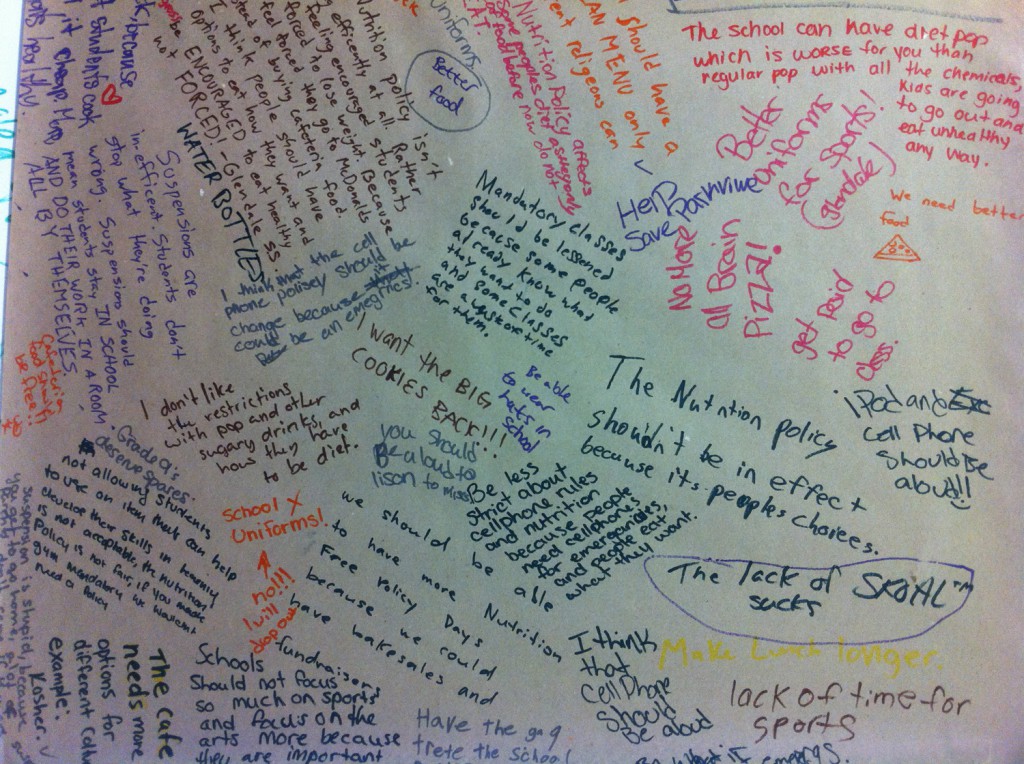 The school can have diet pop
which is WORSE for you than
regular pop with all the chemicals,
Kids are going
to go out and
eat unhealthy
any way.
We need better
food
Better
Uniforms
for Sports!
(Glendale)
Help
Save
No More
all Bran
Pizza!
get Paid
to go to
class.
iPod and
Cell Phone
Should Be
aloud!!
should have a
MENU only
religeons can
EAT.
Nutrition Policy affects
Some peoples diet
uniforms
Better
food
Nutrition policy isn't
efficently at all. Rather
feeling encouraged students
feel forced to lose weight. Because
instead of buying cafeteria food.
they go to McDonalds
I think people should have
options to eat how they want and
ENCOURAGED to eat healthy
not FORCED! -Glendale S.S.
WATER BOTTLES!
Suspensions are
in-efficent. Students don't
stop what they're doing
wrong. Suspensions should
mean students stay IN SCHOOL
AND DO THEIR WORK IN A ROOM
ALL BY THEMSELVES.
I think that the cell
phone polisey should
change because it
could be an emegrinci.
Mandatory Classes
Should be lessened
because some people
already know what
they want to do
and some classes
are a waste of time
for them.
I want the BIG
COOKIES BACK!!!
Be able
to wear
hats in
School
The Nutrition policy
shouldn't be in effect
because it's peoples choices.
Cafeteria
food should
be free!!
I don't like
the restrictions
with pop and other
sugary drinks, and
how they have
to be diet.
you should
Be aloud to
lison to music
Be less
strict about
cellphone rules
and nutrition
because people
need cellphones
for emergancies,
and people eat
what they want.
Grade 9's
deserve spares.
not allowing students
to use an item that can help
develop their skills in learning
is not acceptable, the nutrition
Policy is not fair, if you made
gym mandatory we wouldn't
need a Policy
School X
Uniforms!
no!!!
I will
drop out
we should be able
to have more Nutrition
Free Policy Days
because we could
have bakesales and
fundraisers
The lack of SKOAL™
sucks
Make Lunch longer.
lack of time for
sports
I think
that
Cell Phone
Should
Be aloud
suspension is stupid, because
you get to go home,
The cafe
needs more
options for
different
example:
Kosher.
Schools
Should not focus
so much on sports
and focus on the
arts more because
they are important
Have the
the school